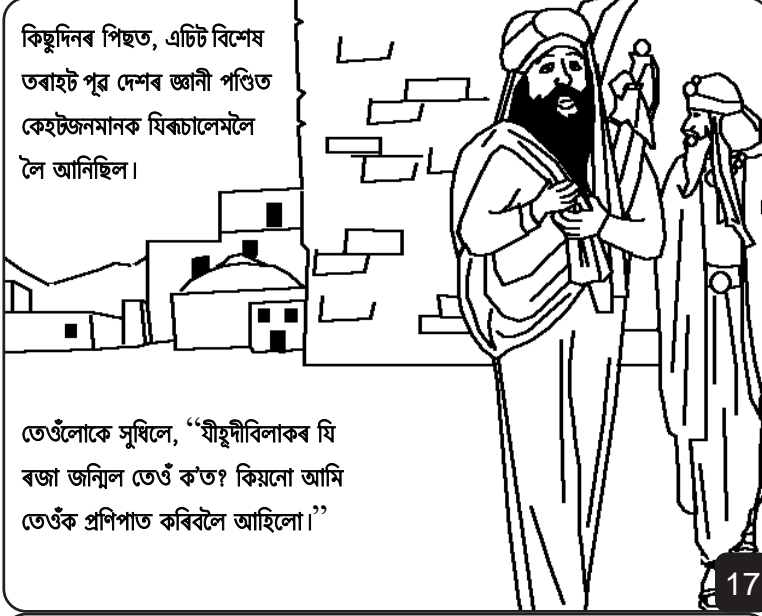 কিছুদিনৰ পিছত, এটিট বিশেষ
তৰাহট পূৱ দেশৰ জ্ঞানী পণ্ডিত
কেহটজনমানক যিৰূচালেমলৈ
লৈ আনিছিল।
তেওঁলোকে সুধিলে, “যীহূদীবিলাকৰ যি
ৰজা জন্মিল তেওঁ ক'ত? কিয়নো আমি
তেওঁক প্ৰণিপাত কৰিবলৈ আহিলো।”
17